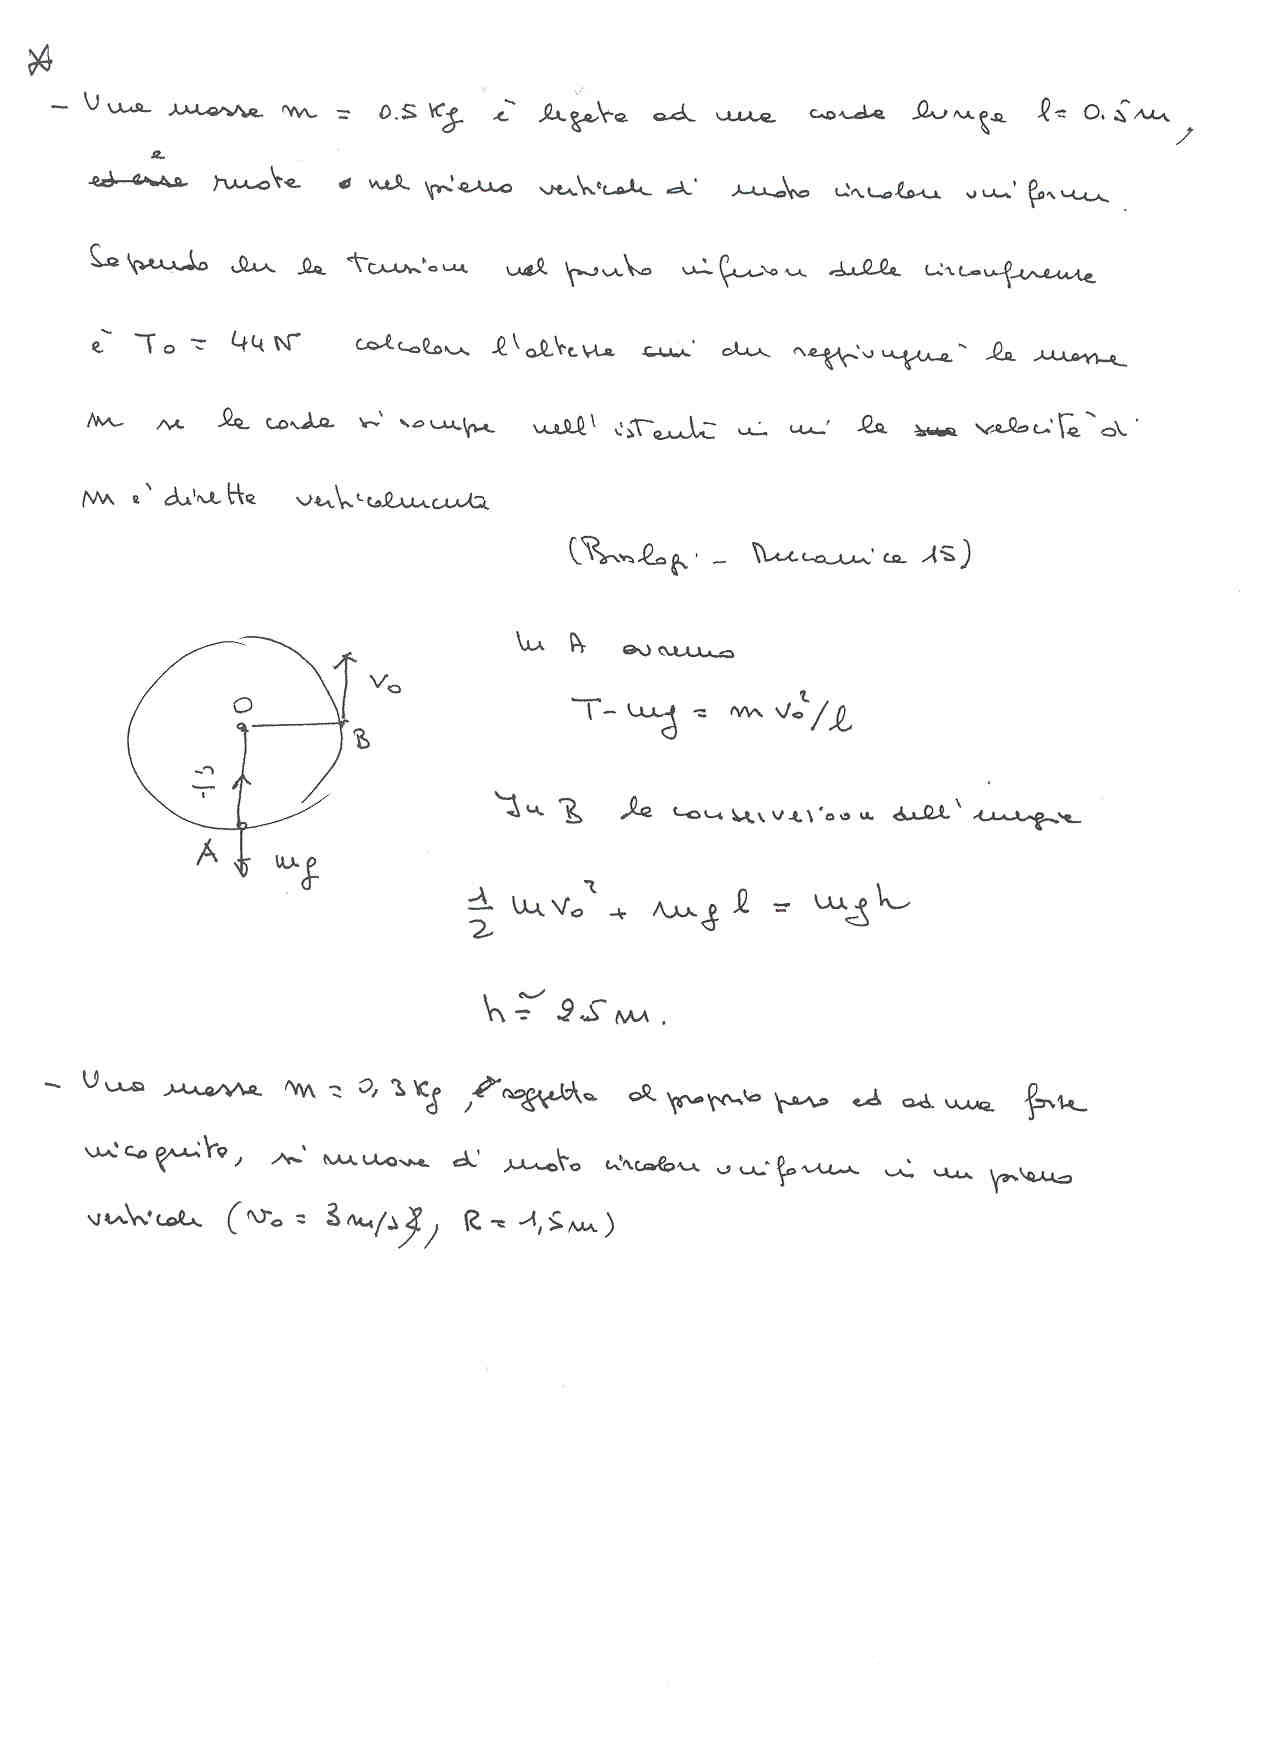 - Una massa m = 0.5 Kg è legata ad una corda lunga l = 0.5 m,
e
ed essa ruota nel piano verticale di moto circolare uniforme.
Sapendo che la tensione nel punto inferiore della circonferenza
è T0 = 44N calcolare l'altezza che raggiungerà la massa
m se la corda si rompe nell'istante in cui la sua velocità di
m e' diretta verticalmente
(Biologi - Meccanica 15)
In A avremo
V0
O
T - mg = m v0²/l
B
In B la conservazione dell'energia
A
mg
1/2 m v0² + mg l = mgh
h ≃ 2.5 m.
- Una massa m = 0,3 Kg, soggetta al proprio peso ed ad una forza
incognita, si muove di moto circolare uniforme in un piano
verticale (v0 = 3 m/s, R = 1,5 m)